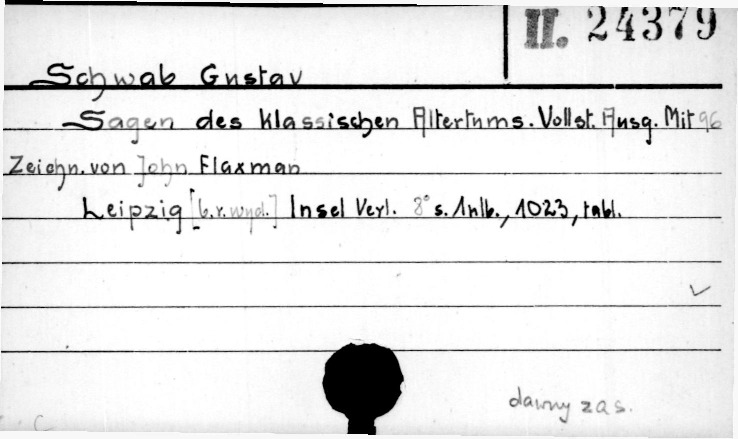 II. 24379
Schwab Gustav
Sagen des klassischen Altertums. Vollst. Ausg. Mit 96
Zeichn. von John Flaxman
Leipzig [b.r.wyd.] Insel Verl. 8° s. 1nlb., 1023, tabl.
dawny zas.